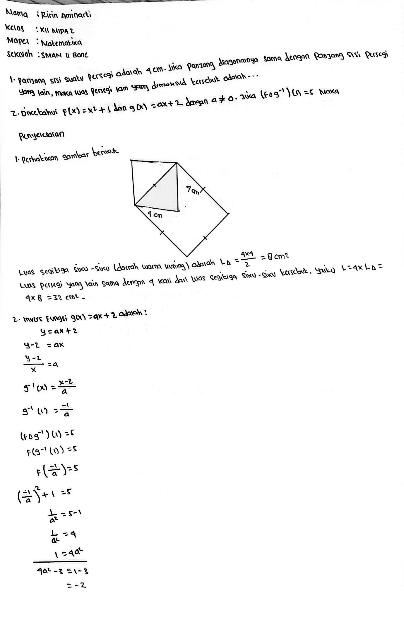 Nama : Ririn Aminarti
Kelas : XII MIPA 2
Mapel : Matematika
Sekolah : SMAN 11 Bone
1. Panjang sisi suatu persegi adalah 4 cm. Jika panjang diagonalnya sama dengan panjang sisi persegi
yang lain, maka luas persegi lain yang dimaksud tersebut adalah...
2. Diketahui F(x) = x² + 1 dan g(x) = ax + 2 dengan a ≠ 0. Jika (Fog⁻¹)(1) = 5 maka
Penyelesaian
1. Perhatikan gambar berikut
4 cm
Luas segitiga siku-siku (daerah warna kuning) adalah L△ = 4x4/2 = 8 cm²
Luas persegi yang lain sama dengan 4 kali dari luas segitiga siku-siku tersebut, yaitu L = 4 x L△ =
4 x 8 = 32 cm².
2. Invers Fungsi g(x) = ax + 2 adalah :
y = ax + 2
y - 2 = ax
y-2/x = a
g⁻¹(x) = x-2/a
g⁻¹(1) = -1/a
(Fog⁻¹)(1) = 5
F(g⁻¹(1)) = 5
F(-1/a) = 5
(-1/a)² + 1 = 5
1/a² = 5 - 1
1/a² = 4
1 = 4a²
4a² - 3 = 1 - 3
= -2